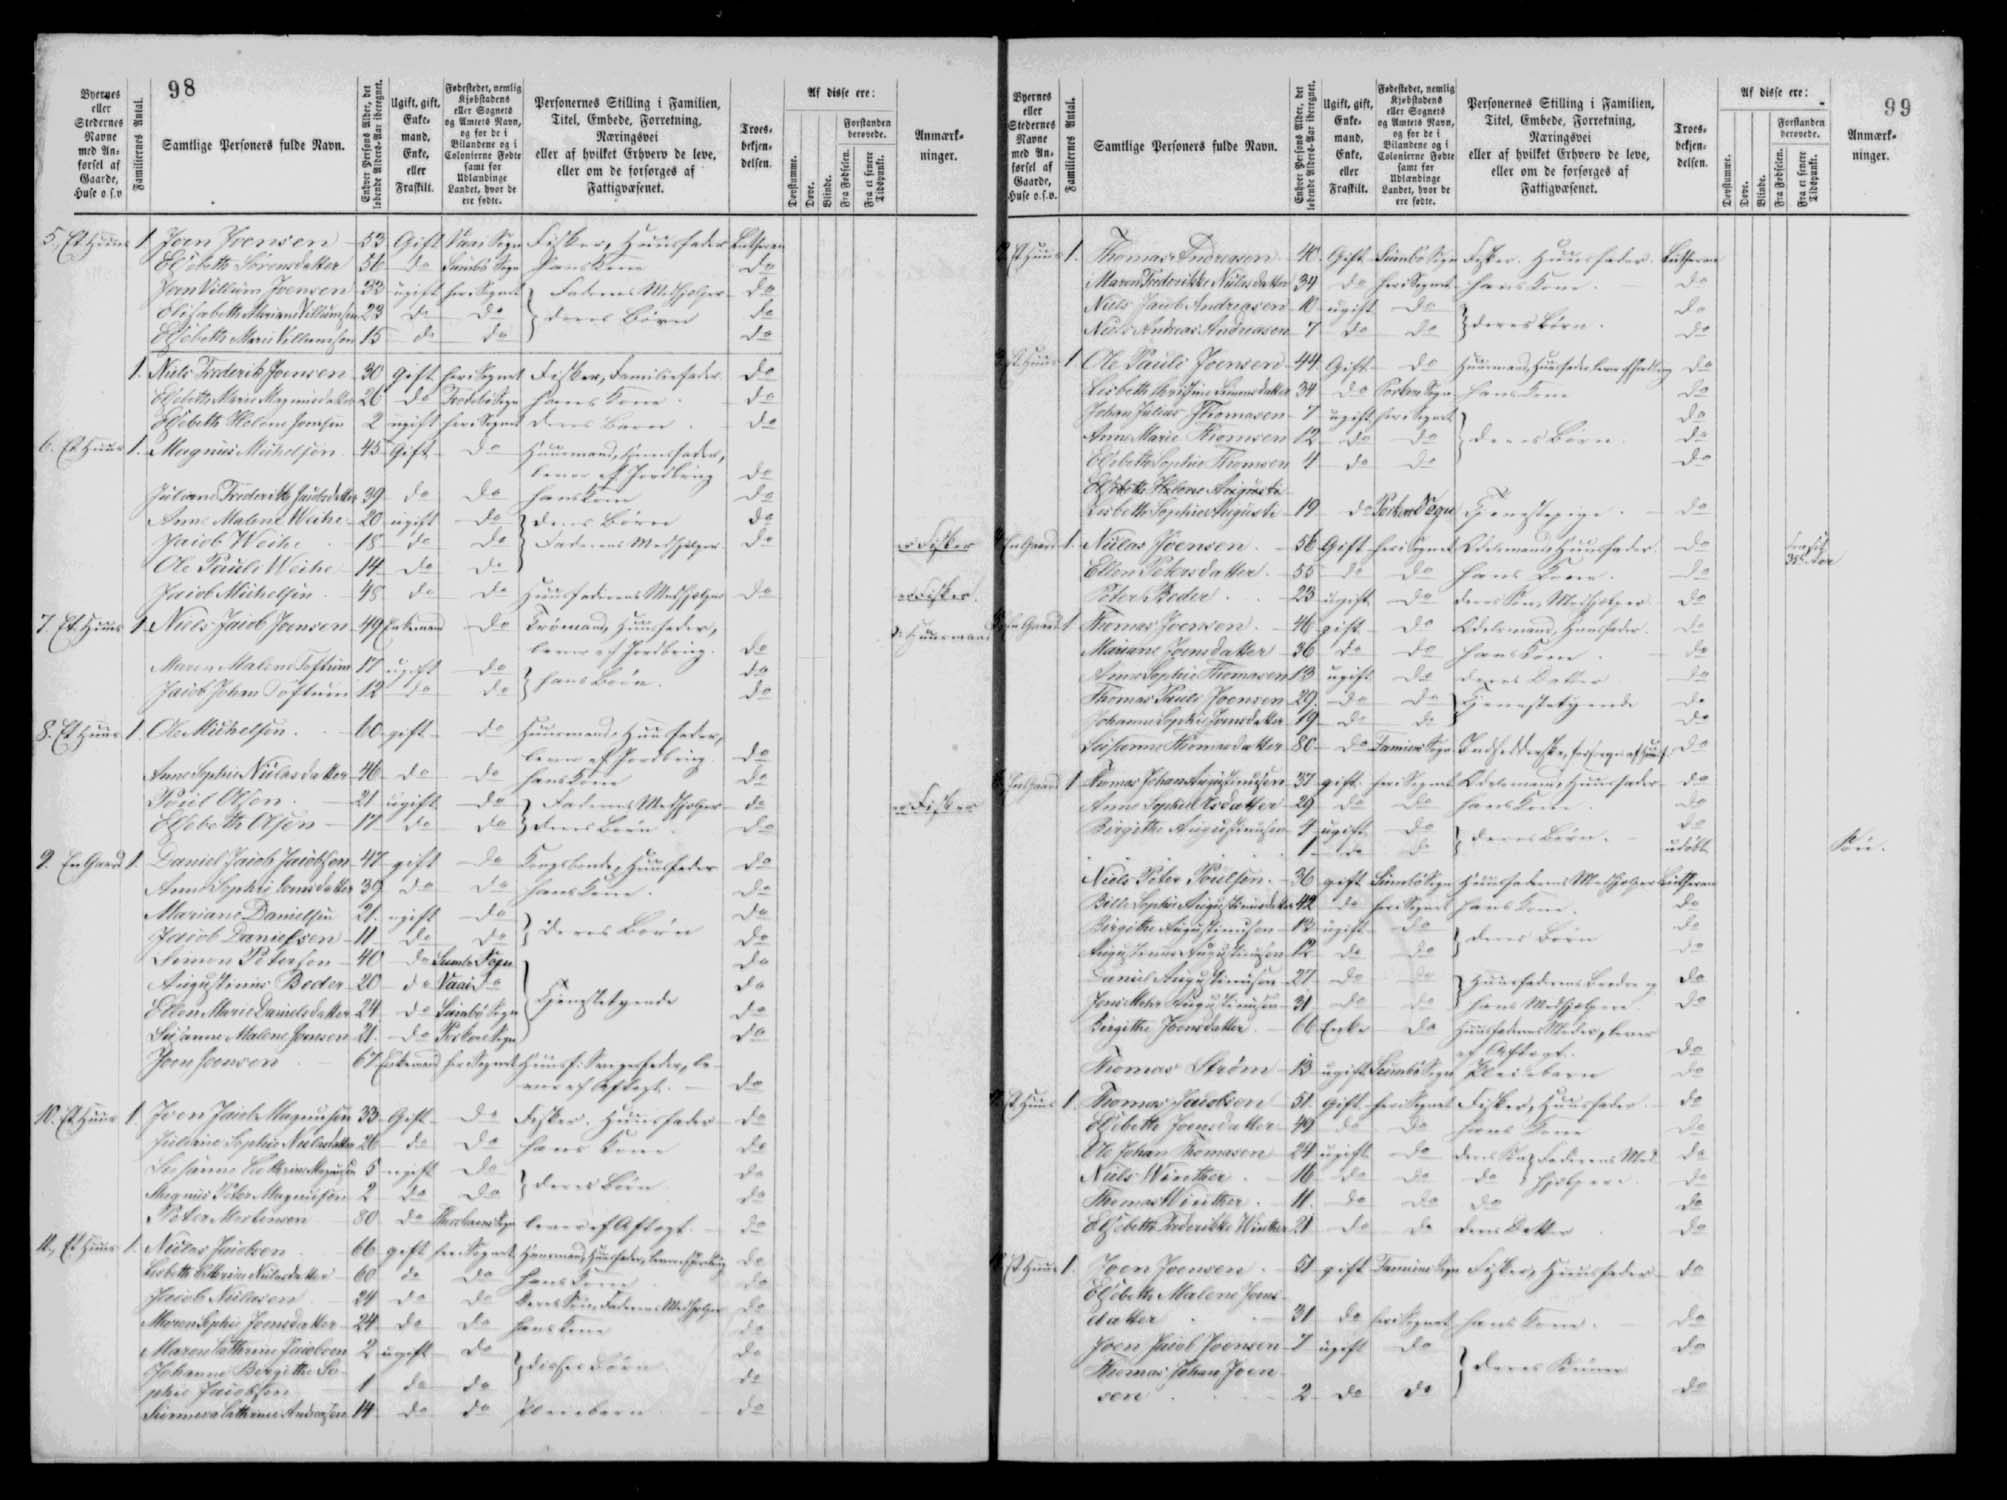 98
Byernes eller Stedernes Navne med Anførsel af Gaarde, Huse o.s.v
Familiernes Antal.
Samtlige Personers fulde Navn.
Enhver Persons Alder, det løbende Alders-Aar iberegnet.
Ugift, gift, Enkemand, Enke, eller Fraskilt.
Fødestedet, nemlig Kjøbstadens eller Sognets og Amtets Navn, og for de i Bilandene og i Colonierne Fødte samt for Udlændinge Landet, hvor de ere fødte.
Personernes Stilling i Familien, Titel, Embede, Forretning, Næringsvei eller af hvilket Erhverv de leve, eller om de forsørges af Fattigvæsenet.
Troesbekjendelsen.
Af disse ere:
Døvstumme.
Døve.
Blinde.
Forstanden berøvede.
Fra Fødselen.
Fra et senere Tidspunkt.
Anmærkninger.
5, Et Huus 1. Joen Joensen 53 Gift Vaai Sogn Fisker, Huusfader Lutheran
Elsebeth Sørensdatter 56 do Sumbø Sogn hans Kone do
Joen Villum Joensen 33 ugift her i Sognet Faderens Medhjelper do
Elisabeth Mariane Villumsen 23 do do deres Børn do
Elsebeth Marie Villumsen 15 do do do
1. Niels Frederik Joensen 30 Gift her i Sognet Fisker, Familiefader do
Elsebeth Marie Magnusdatter 26 do Sogn hans Kone do
Elsebeth Helene Joensen 2 ugift her i Sognet deres Barn do
6. Et Huus 1. Magnus Michelsen 45 Gift do Huusmand, Huusfader,
lever af Jordbrug do
Juliane Frederikke Jacobsdatter 39 do do hans Kone do
Anne Malene Weihe 20 ugift do deres Børn do
Jacob Weihe 18 do do Faderens Medhjelper do Fisker
Ole Pauli Weihe 14 do do
Jacob Michelsen 48 do do Huusfaderens Medhjelper do Fisker.
7. Et Huus 1. Niels Jacob Joensen 49 Enkemand do Huusfader,
lever af Jordbrug. do Huusmand
Maren Malene Toftum 17 ugift do hans Børn. do
Jacob Johan Toftum 12 do do do
8. Et Huus 1. Ole Michelsen 60 gift do Huusmand, Huusfader,
lever af Jordbrug. do
Anne Sophie Niclasdatter 46 do do hans Kone do
Poul Olsen 21 ugift do Faderens Medhjelper do Fisker
Elsebeth Olsen 17 do do deres Børn. do
9. En Gaard 1. Daniel Jacob Jacobsen 47 gift do Kongsbonde, Huusfader do
Anne Sophie Joensdatter 39 do do hans Kone. do
Mariane Danielsen 21. ugift do deres Børn do
Jacob Danielsen 11 do do do
Simon Petersen 40 do Sumbø Sogn do
Augustinus Beder 20 do Vaai do Tjenestetyende do
Ellen Marie Danielsdatter 24 do Sumbø Sogn do
Susanne Malene Joensen 21. do Porkere Sogn do
Joen Joensen 67 Enkemand her i Sognet Huusf: Svigerfader, lever
af Aftægt. do
10. Et Huus 1. Joen Jacob Magnusen 33 Gift do Fisker. Huusfader do
Juliane Sophie Niclasdatter 26 do do hans Kone do
Susanne Cathrine Magnusen 5 ugift do deres Børn do
Magnus Peter Magnusen 2 do do do
Peter Mortensen 80 do Sogn lever af Aftægt. do
11, Et Huus 1. Niclas Jacobsen 66 gift her i Sognet Huusmand, Huusfader, lever af Jordbrug do
Lisbeth Cathrine Niclasdatter 60 do do hans Kone do
Jacob Niclasen 24 do do deres Søn, Faderens Medhjelper do
Maren Sophie Joensdatter 24 do do hans Kone do
Maren Cathrine Jacobsen 2 ugift do disses Børn do
Johanne Birgithe Sophie
Jacobsen 1 do do do
Cathrine Andreasen 14 do do Pleiebarn do
99
Byernes eller Stedernes Navne med Anførsel af Gaarde, Huse o.s.v.
Familiernes Antal.
Samtlige Personers fulde Navn.
Enhver Persons Alder, det løbende Alders-Aar iberegnet.
Ugift, gift, Enkemand, Enke, eller Fraskilt.
Fødestedet, nemlig Kjøbstadens eller Sognets og Amtets Navn, og for de i Bilandene og i Colonierne Fødte samt for Udlændinge Landet, hvor de ere fødte.
Personernes Stilling i Familien, Titel, Embede, Forretning, Næringsvei eller af hvilket Erhverv de leve, eller om de forsørges af Fattigvæsenet.
Troesbekjendelsen.
Af disse ere:
Døvstumme.
Døve.
Blinde.
Forstanden berøvede.
Fra Fødselen.
Fra et senere Tidspunkt.
Anmærkninger.
Et Huus 1. Thomas Andreasen 40. Gift Sumbø Sogn Fisker. Huusfader Lutheran
Maren Frederikke Niclasdatter 34 do her i Sognet hans Kone. do
Niels Jacob Andreasen 10 ugift do deres Børn. do
Niels Andreas Andreasen 7 do do do
Et Huus 1 Ole Pauli Joensen 44 Gift do Huusmand, Huusfader, lever af Jordbrug do
Lisbeth Christine Simonsdatter 34 do Porkere Sogn hans Kone do
Johan Julius Thomasen 7 ugift her i Sognet do
Anne Marie Thomsen 12 do do deres Børn. do
Elsebeth Sophie Thomsen 4 do do do
Elsebeth Helene Augusti
Lisbeth Sophie Augusti 19 do Porkere Sogn Tjenestepige. do
En Gaard 1. Niclas Joensen 56 Gift her i Sognet Odelsmand, Huusfader. do
Ellen Petersdatter 55 do do hans Kone. do
Peter Beder 23 ugift do deres Søn, Medhjelper do
En Gaard 1 Thomas Joensen 46 gift do Odelsmand, Huusfader. do
Mariane Joensdatter 36 do do hans Kone. do
Anne Sophie Thomasen 13 ugift do deres Datter do
Thomas Pauli Joensen 29. do do Tjenestetyende do
Johanne Sophie Joensdatter 19 do do do
Susanne Thomasdatter 80 do Famien Sogn do
En Gaard 1 Thomas Johan Augustinusen 37 gift her i Sognet Odelsmand, Huusfader do
Anne Sophie Olsdatter 29 do do hans Kone. do
Birgithe Augustinusen 4 ugift do deres Børn. do
1 do do udøbt Søn.
Niels Peter Poulsen 36 gift Sumbø Sogn Huusfaderens Medhjelper Lutheran
Bille Sophie Augustinusdatter 42 do her i Sognet hans Kone. do
Birgithe Augustinusen 13 ugift do deres Børn do
Augustinus Augustinusen 12 do do do
Daniel Augustinusen 27 do do Huusfaderens Brødre og do
Jens Mohr Augustinusen 31 do do hans Medhjelpere do
Birgithe Joensdatter 66 Enke do Huusfaderens Moder, lever
af Aftægt. do
Thomas Strøm 13 ugift Sumbø Sogn Pleiebarn do
Et Huus 1. Thomas Jacobsen 51. Gift her i Sognet Fisker, Huusfader do
Elsebeth Joensdatter 49 do do hans Kone do
Ole Johan Thomasen 24 ugift do deres Søn Faderens Med- do
Niels Winther 16 do do do hjelpere. do
Thomas Winther 11. do do do do
Elsebeth Frederikke Winther 21 do do deres Datter do
Et Huus 1. Joen Joensen 51 gift Famien Sogn Fisker, Huusfader do
Elsebeth Malene Joensdatter
31 do her i Sognet hans Kone. do
Joen Jacob Joensen 7 ugift do deres do
Thomas Johan Joensen
2 do do do